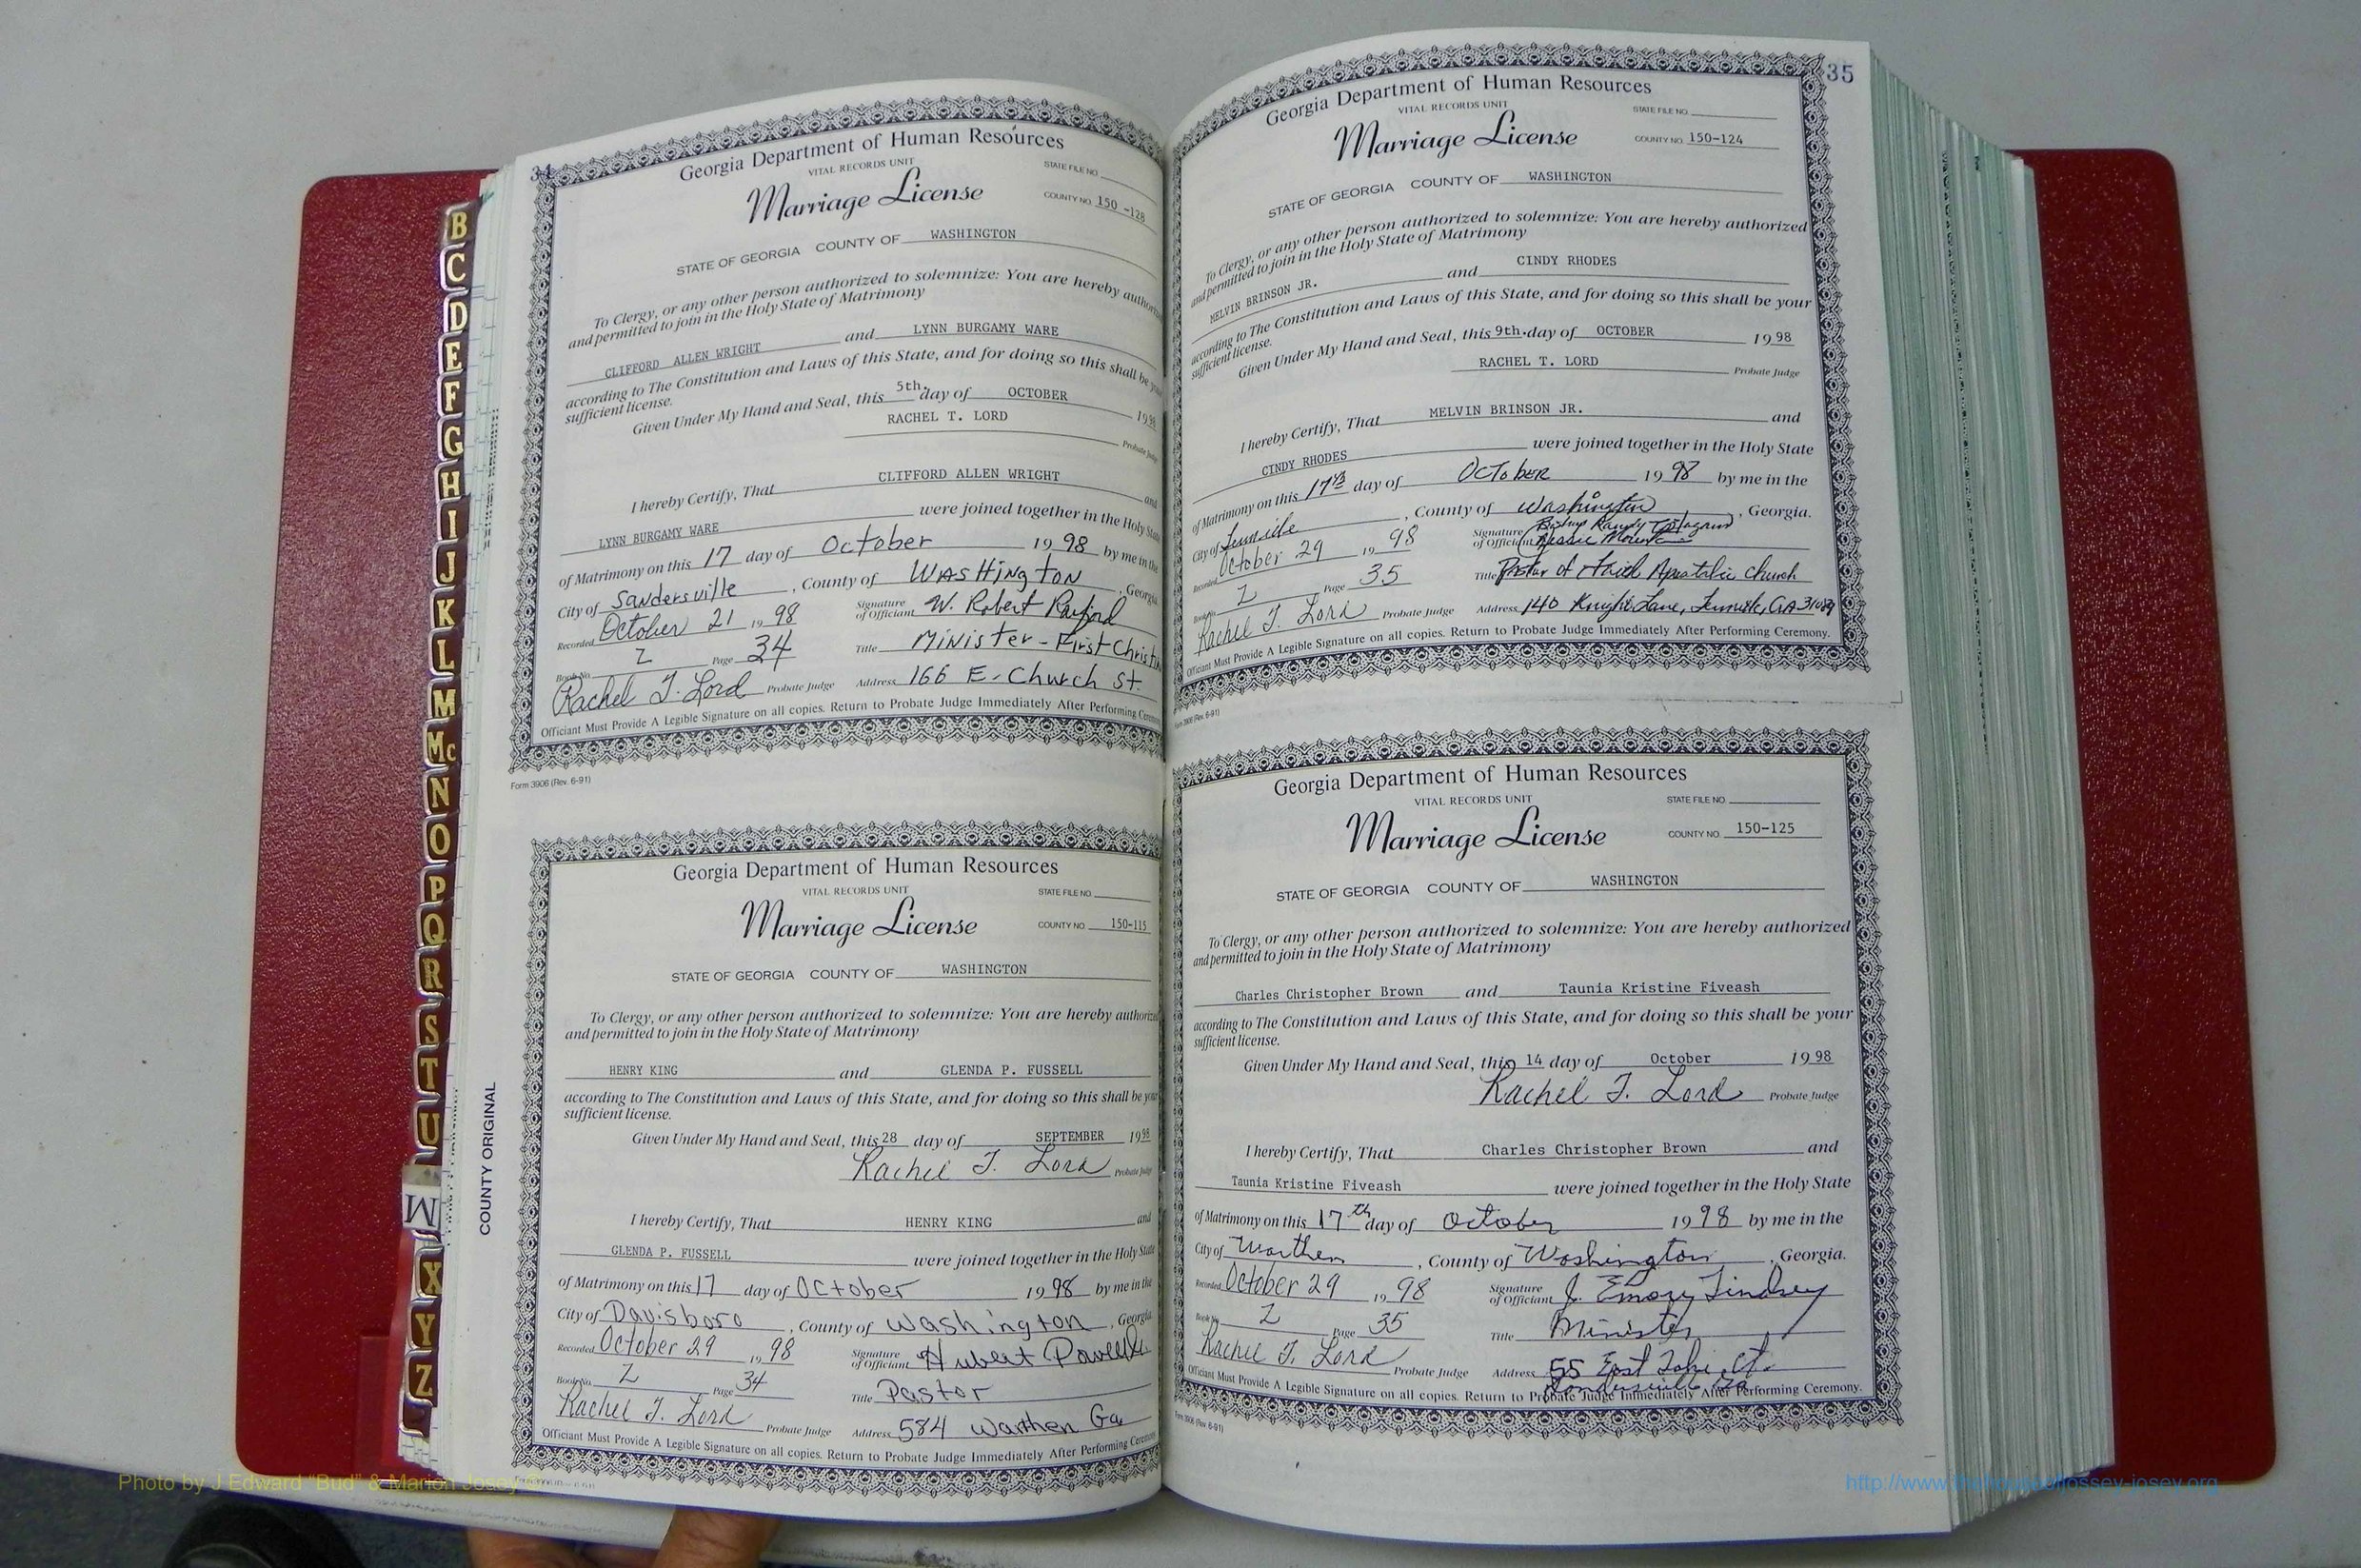 34
Georgia Department of Human Resources
VITAL RECORDS UNIT
STATE FILE NO.
Marriage License
COUNTY NO. 150-128
STATE OF GEORGIA COUNTY OF WASHINGTON
To Clergy, or any other person authorized to solemnize: You are hereby
and permitted to join in the Holy State of Matrimony
CLIFFORD ALLEN WRIGHT and LYNN BURGAMY WARE
according to The Constitution and Laws of this State, and for doing so this shall be
sufficient license.
Given Under My Hand and Seal, this 5th. day of OCTOBER 1998
RACHEL T. LORD
Probate Judge
I hereby Certify, That CLIFFORD ALLEN WRIGHT and
LYNN BURGAMY WARE were joined together in the Holy State
of Matrimony on this 17 day of October 1998 by me in the
City of Sandersville, County of WASHington, Georgia
Recorded October 21 1998 Signature of Officiant W. Robert
Book No. Z Page 34 Title Minister - First
Rachel T. Lord Probate Judge Address 166 E. Church St.
Officiant Must Provide A Legible Signature on all copies. Return to Probate Judge Immediately After Performing
Form 3906 (Rev. 6-91)
Georgia Department of Human Resources
VITAL RECORDS UNIT
STATE FILE NO.
Marriage License
COUNTY NO. 150-115
STATE OF GEORGIA COUNTY OF WASHINGTON
To Clergy, or any other person authorized to solemnize: You are hereby
and permitted to join in the Holy State of Matrimony
HENRY KING and GLENDA P. FUSSELL
according to The Constitution and Laws of this State, and for doing so this shall be
sufficient license.
Given Under My Hand and Seal, this 28 day of SEPTEMBER 1998
Rachel T. Lord Probate Judge
I hereby Certify, That HENRY KING and
GLENDA P. FUSSELL were joined together in the Holy State
of Matrimony on this 17 day of October 1998 by me in the
City of Davisboro, County of Washington, Georgia
Recorded October 29 1998 Signature of Officiant Hubert Powell
Book No. Z Page 34 Title Pastor
Rachel T. Lord Probate Judge Address 584 Warthen Ga
Officiant Must Provide A Legible Signature on all copies. Return to Probate Judge Immediately After Performing Ceremony
COUNTY ORIGINAL
35
Georgia Department of Human Resources
VITAL RECORDS UNIT
STATE FILE NO.
Marriage License
COUNTY NO. 150-124
STATE OF GEORGIA COUNTY OF WASHINGTON
To Clergy, or any other person authorized to solemnize: You are hereby authorized
and permitted to join in the Holy State of Matrimony
MELVIN BRINSON JR. and CINDY RHODES
according to The Constitution and Laws of this State, and for doing so this shall be your
sufficient license.
Given Under My Hand and Seal, this 9th. day of OCTOBER 1998
RACHEL T. LORD
Probate Judge
I hereby Certify, That MELVIN BRINSON JR. and
CINDY RHODES were joined together in the Holy State
of Matrimony on this 17th day of OCTobER 1998 by me in the
City of Tennille, County of Washington, Georgia.
Recorded October 29 1998 Signature of Officiant
Book No. Z Page 35 Title Pastor of Apostolic Church
Rachel T. Lord Probate Judge Address 140 Knight Lane, Tennille, GA 31089
Officiant Must Provide A Legible Signature on all copies. Return to Probate Judge Immediately After Performing Ceremony.
Form 3906 (Rev. 6-91)
Georgia Department of Human Resources
VITAL RECORDS UNIT
STATE FILE NO.
Marriage License
COUNTY NO. 150-125
STATE OF GEORGIA COUNTY OF WASHINGTON
To Clergy, or any other person authorized to solemnize: You are hereby authorized
and permitted to join in the Holy State of Matrimony
Charles Christopher Brown and Taunia Kristine Fiveash
according to The Constitution and Laws of this State, and for doing so this shall be your
sufficient license.
Given Under My Hand and Seal, this 14 day of October 1998
Rachel T. Lord Probate Judge
I hereby Certify, That Charles Christopher Brown and
Taunia Kristine Fiveash were joined together in the Holy State
of Matrimony on this 17th day of October 1998 by me in the
City of Warthen, County of Washington, Georgia.
Recorded October 29 1998 Signature of Officiant J. Emory Lindsey
Book No. Z Page 35 Title Minister
Rachel T. Lord Probate Judge Address 55 East
Sandersville Ga
Officiant Must Provide A Legible Signature on all copies. Return to Probate Judge Immediately After Performing Ceremony.
Form 3906 (Rev. 6-91)
B
C
D
E
F
G
H
I
J
K
L
M
Mc
N
O
P
Q
R
S
T
U
W
X
Y
Z
Photo by J Edward "Bud" & Marion Josey ©
http://www.thehouseofjossey-josey.org